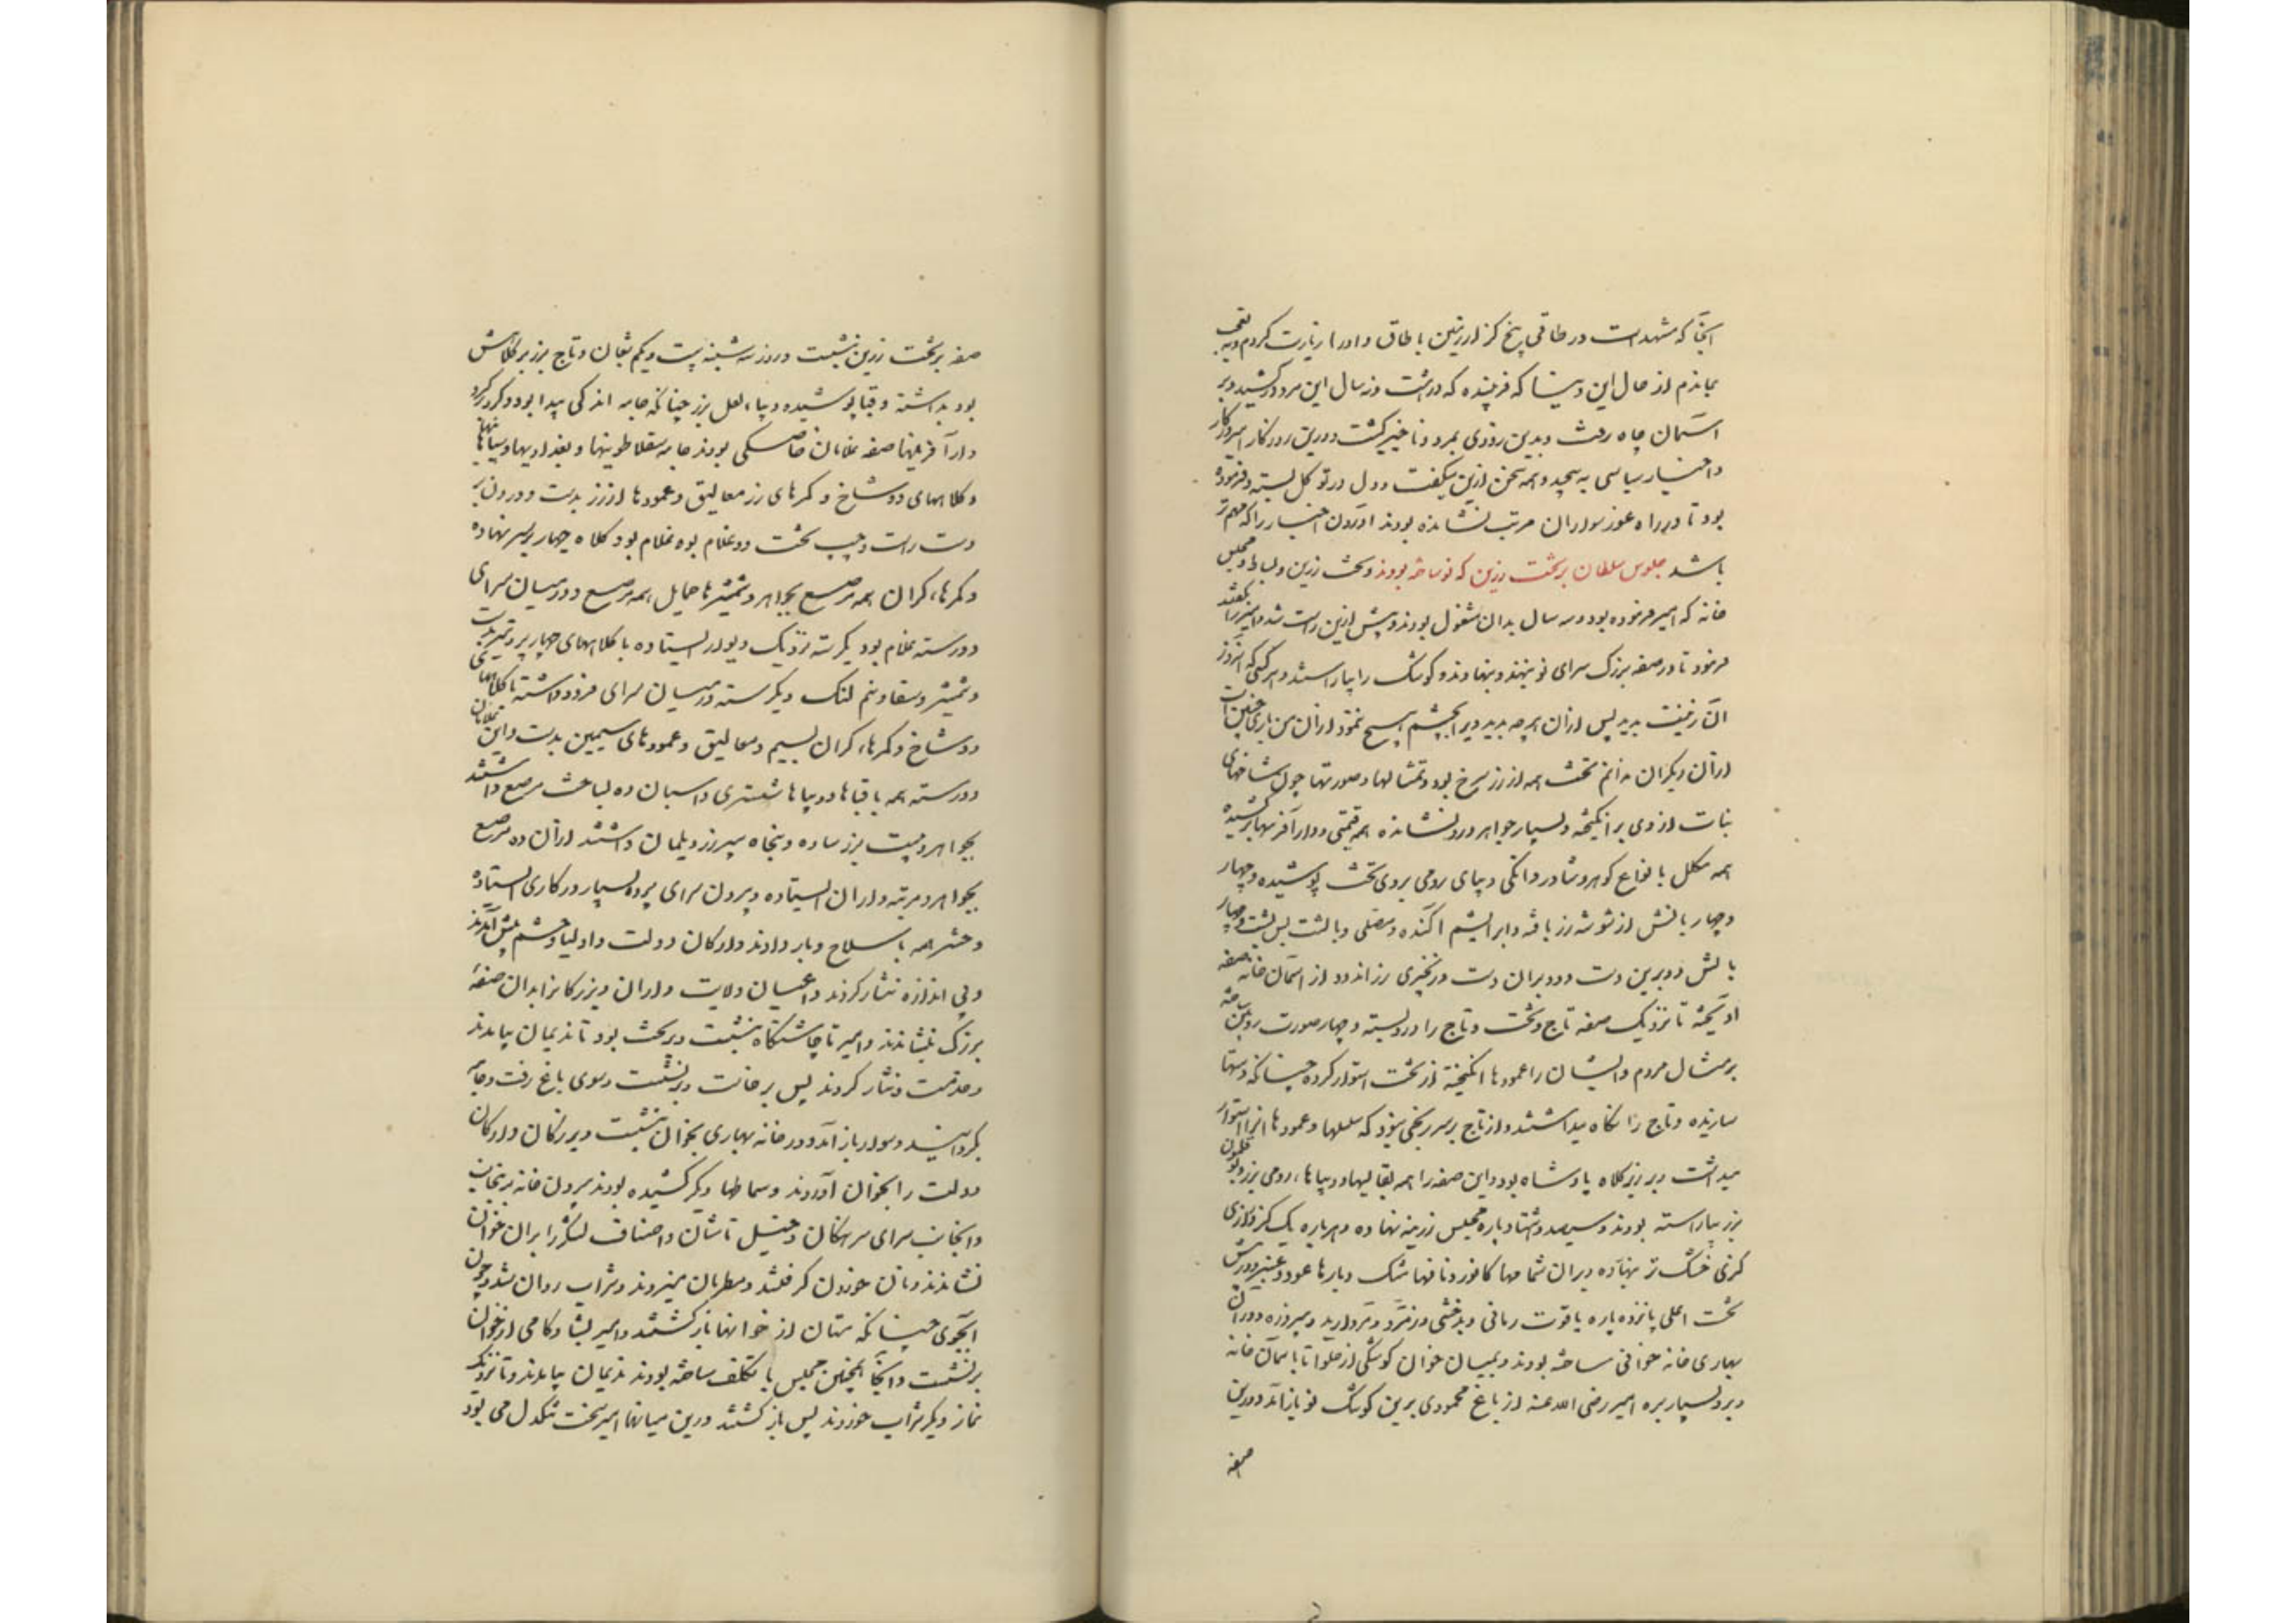 آنجا که مشهد است در طاقی پنج گز از زمین با طاق و او را زیارت کردم و به تعجب
بماندم از حال این دنیا که فریبنده که در هشت و نه سال این مرد را برکشید و بر
آسمان جاه رفت و بدین زودی بمرد و ناچیز گشت و درین روزگار امیر در کار
و اخبار سپاسی به پیچید و همه سخن ازین میگفت و دل در توکل بسته و فرموده
بود تا در راه غور سواران مرتب نشانده بودند آوردن اخبار را که مهم تر
باشد جلوس سلطان بر تخت زرین که نو ساخته بودند و تخت زرین و بساط و مجلس
خانه که امیر فرموده بود و سه سال بدان مشغول بودند و پیش ازین راست شد و امیر را بگفتند
فرمود تا در صفه بزرگ سرای نو بنهند و بنهادند و کوشک را بیاراستند و هر کسی که آنروز
آن زینت بدید پس از آن هر چه بدید ویرا بچشم هیچ ننمود از آن من باری چنین است
از آن دیگران ندانم تخت همه از زر سرخ بود و تمثالها و صورتها چون شاخهای
نبات از وی برانگیخته و بسیار جواهر درو نشانده همه قیمتی و دار آفرینها برکشیده
همه مکلل بانواع گوهر و شادروانکی دیبای رومی بروی تخت پوشیده و چهار
و چهار بالش از شوشه زر بافته و ابریشم آکنده و مصلی و بالشت پس پشت و چهار
بالش دو برین دست و دو بران دست و زنجیری زر اندود از آسمان خانه صفه
آویخته تا نزدیک صفه تاج و تخت و تاج را درو بسته و چهار صورت رویین ساخته
بر مثال مردم و ایشان را عمودها انگیخته از تخت استوار کرده چنانکه دستها
سازنده و تاج را نگاه میداشتند و از تاج بر سر رنجی نبود که سلسلها و عمودها آنرا استوار
میداشت و بر زیر کلاه پادشاه بود و این صفه را همه بقالیها و دیباهاء رومی بزر و بوقلمون
بزر بیاراسته بودند و سیصد و هشتاد پاره مجلس زرینه نهاده و هر پاره یک گز درازی
گزی خشک تر نهاده و بران شمامها کافور و نافها مشک و پارها عود و عنبر و در پیش
تخت اعلی پانزده پاره یاقوت رمانی و بدخشی و زمرد و مروارید و پیروزه و در آن
بهاری خانه خوانی ساخته بودند و بمیان خوان کوشکی از حلوا تا بآسمان خانه
و برو بسیار بره امیر رضی الله عنه از باغ محمودی برین کوشک نو بازآمد و درین
صفه
صفه بر تخت زرین نشست در روز سه شنبه بیست و یکم شعبان و تاج بزبر کلاهش
بود بداشته و قبا پوشیده دیباء لعل بزر چنانکه جامه اندکی پیدا بود و گرد بر گرد
دار آفرینها صفه غلامان خاصگی بودند جامه سقلاطونیها و بغدادیها و سپاهانیها
و کلاههای دو شاخ و کمرهای زر معالیق و عمودها از زر بدست و درون بر
دست راست و چپ تخت ده غلام بوده غلام بود کلاه چهار بر سر نهاده
و کمرهاء گران همه مرصع بجواهر و شمشیرها حمایل همه مرصع و در میان سرای
دو رسته غلام بود یک رسته نزدیک دیوار ایستاده با کلاههای چهار پر و تیر بدست
و شمشیر و شقا و نیم لنگ و یک رسته در میان سرای فرود داشته با کلاهها
دو شاخ و کمرهاء گران بسیم و معالیق و عمودهای سیمین بدست و این غلامان
دو رسته همه با قباها دیباها شستری و اسبان ده بساخت مرصع داشتند
بجواهر و بیست بزر ساده و پنجاه سپر زر دیلمان داشتند از آن ده مرصع
بجواهر و مرتبه داران ایستاده و بیرون سرای پرده بسیار درگاهی ایستاده
و حشر همه با سلاح و بار دادند و ارکان دولت و اولیا و حشم پیش آمدند
و بی اندازه نثار کردند و اعیان ولایت داران و بزرگانرا بدان صفه
بزرگ بنشاندند و امیر تا چاشتگاه بنشست و بر تخت بود تا ندیمان بیامدند
و خدمت و نثار کردند پس برخاست و برنشست و سوی باغ رفت و جامه
بگردانید و سوار بازآمد و در خانه بهاری بخوان بنشست و بزرگان و ارکان
دولت را بخوان آوردند و سماطها دیگر کشیده بودند بیرون خانه برینجانب
و آنجانب سرای سرهنگان و خیل تاشان و اصناف لشکر را بران خوان
نشاندند و نان خوردن گرفتند و مطربان میزدند و شراب روان شد و چون
آبجوی چنانکه مستان از خوانها بازگشتند و امیر بشادکامی از خوان
برنشست و آنجا همچنین مجلس با تکلف ساخته بودند ندیمان بیامدند و تا نزدیک
نماز دیگر شراب خوردند پس بازگشتند و درین میانها امیر سخت تنگدل می بود